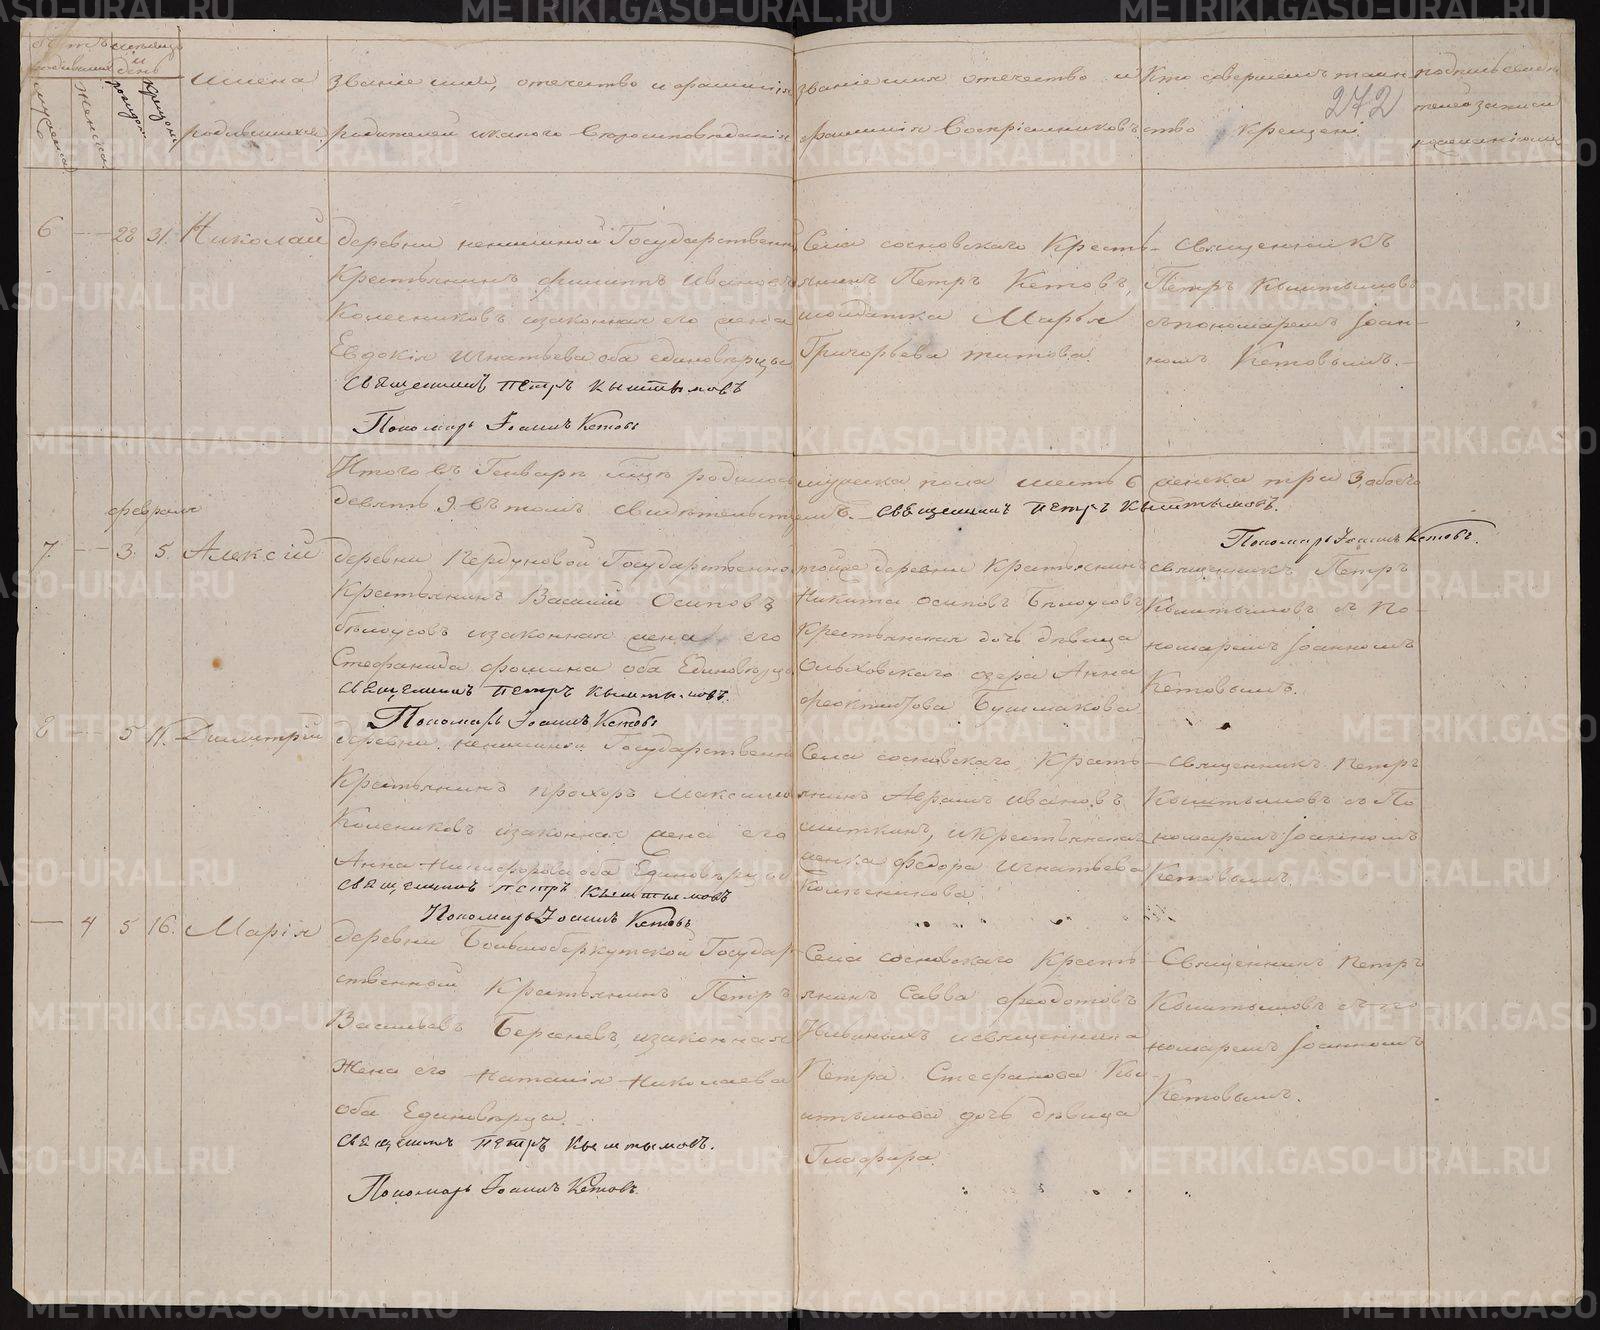 272
Счетъ родившихся
мужеска
женска
месяцъ и день
рожден.
крещен.
имена родившихся.
званіе имя, отечество и фамилія
родителей и какого вероисповеданія
званіе имя отечество и
фамилія Воспріемниковъ
Кто совершалъ таин-
ство крещені
6 — 28 31. Николай
деревни Государственн
Крестьянинъ филиппъ Ивановъ
Колесниковъ изаконная его жена
Евдокія Игнатьева оба единоверцы
священникъ петръ кыштымовъ
Пономарь Іоаннъ Кетовъ
Села сосновскаго Кресть-
янинъ Петръ Кетовъ,
исолдатка Марья
Григорьева титова.
Священникъ
Петръ Кыштымовъ
съпономаремъ Іоан-
номъ Кетовымъ.—
Итого въ Генваре м͠це родилось мужеска пола шесть 6 женска три 3 обоего
девять 9. въ томъ свидетельствуемъ.— священникъ петръ кыштымовъ.
Пономарь Іоаннъ Кетовъ.
февраль
7. — 3. 5. Алексій
деревни Государственно
Крестьянинъ Василій Осиповъ
белоусовъ изаконная жена его
Стефанида фомина оба Единоверцы
священникъ петръ кыштымовъ.
Пономарь Іоаннъ Кетовъ
тойже деревни Крестьянинъ
Никита осиповъ Белоусовъ
Крестьянская дочь девица
Ольховскаго озера Анна
феоктистова Бушмакова
священникъ Петръ
Кыштымовъ съ По-
номаремъ Іоанномъ
Кетовымъ.
8 — 5 11. Димитрій
деревни Государственн
Крестьянинъ прохоръ Максимо
Колесниковъ изаконная жена его
Анна Никифорова оба Единоверцы
священникъ петръ кыштымовъ
Пономарь Іоаннъ Кетовъ
Села сосновскаго, Кресть
янинъ Аврамъ ивановъ
икрестьянская
женка федора Игнатьева
Колесникова
— священникъ Петръ
Кыштымовъ съ По
номаремъ Іоанномъ
Кетовымъ.
— 4 5 16. Марія
деревни Большеберкутской Государ-
ственной Крестьянинъ Петръ
Васильевъ Берсеневъ, изаконная
Жена его Наталія Николаева
оба Единоверцы.
священникъ петръ кыштымовъ.
Пономарь Іоаннъ Кетовъ.
Села сосновскаго Кресть
янинъ Савва федотовъ
исвященника
Петра Стефанова Кы-
штымова дочь девица
Глафира.
— Священникъ Петръ
Кыштымовъ съ по
номаремъ Іоанномъ
Кетовымъ.
METRIKI.GASO-URAL.RU